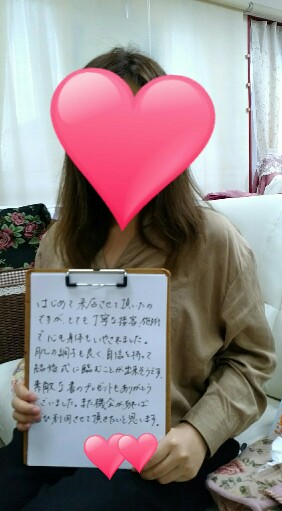 はじめて来店させて頂いたの
ですが、とても丁寧な接客、施術
で心も身体もいやされました。
肌の調子も良く自信を持って
結婚式に臨むことが出来そうです。
素敵な春のプレゼントもありがとう
ございました。また機会があれば
ぜひ利用させて頂きたいと思います。